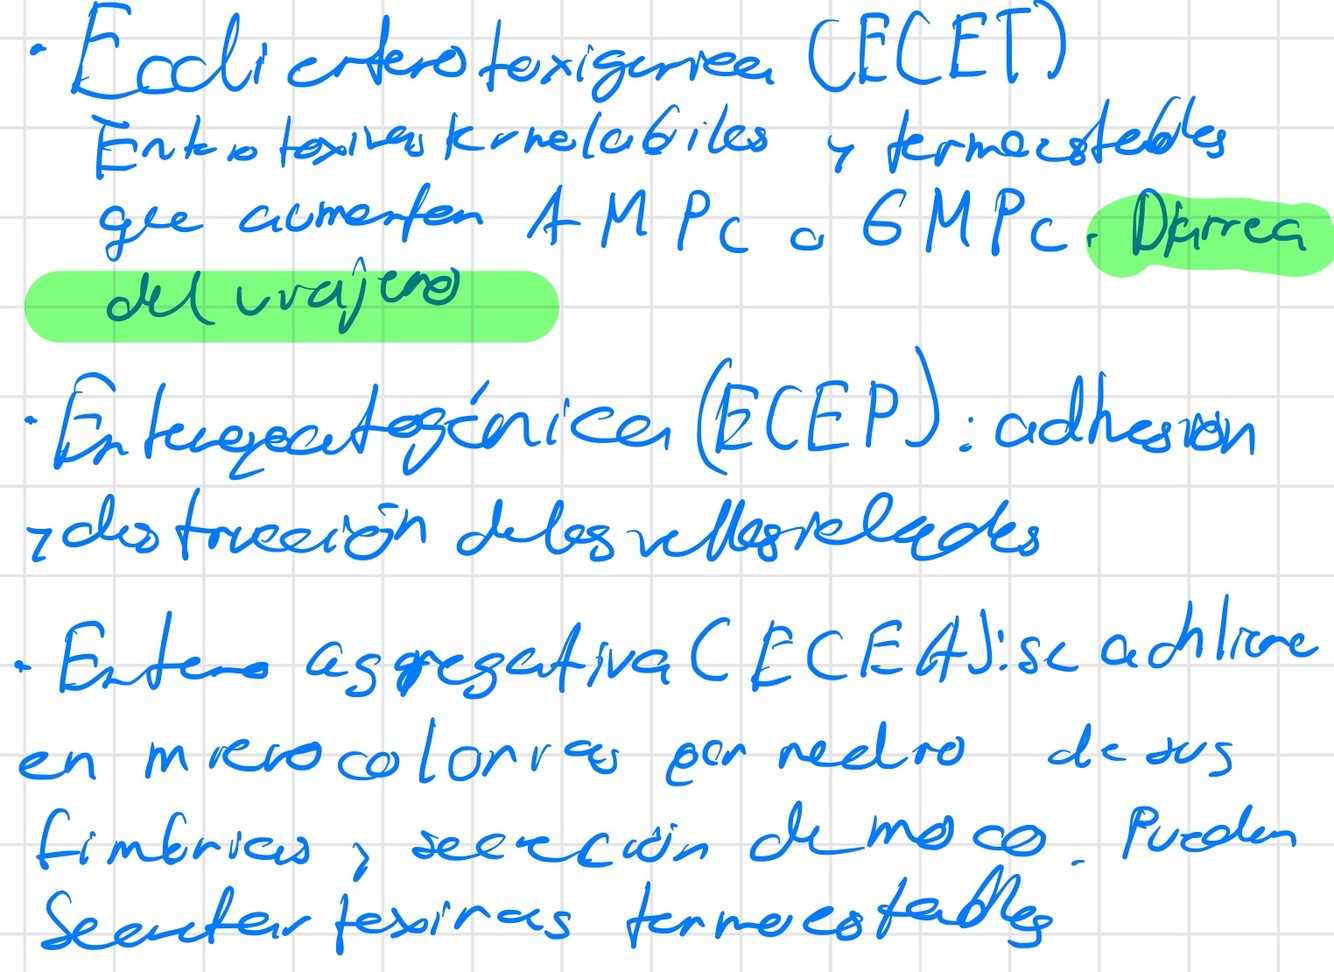 · E coli enterotoxigenica (ECET)
Enterotoxinas termolabiles y termoestables
que aumentan AMPc o GMPc. Diarrea
del viajero
· Enteropatogénica (ECEP): adhesion
y destrucción de las vellosidades
· Entero agregativa (ECEA): se adhiere
en microcolonias por medio de sus
fimbrias y secreción de moco. Pueden
Secretar toxinas termoestables